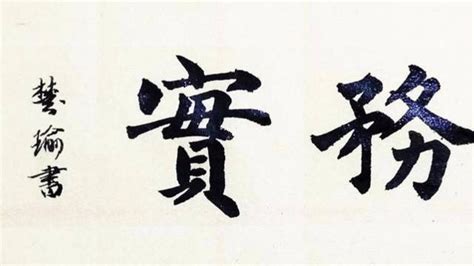 務實
楚瑜書